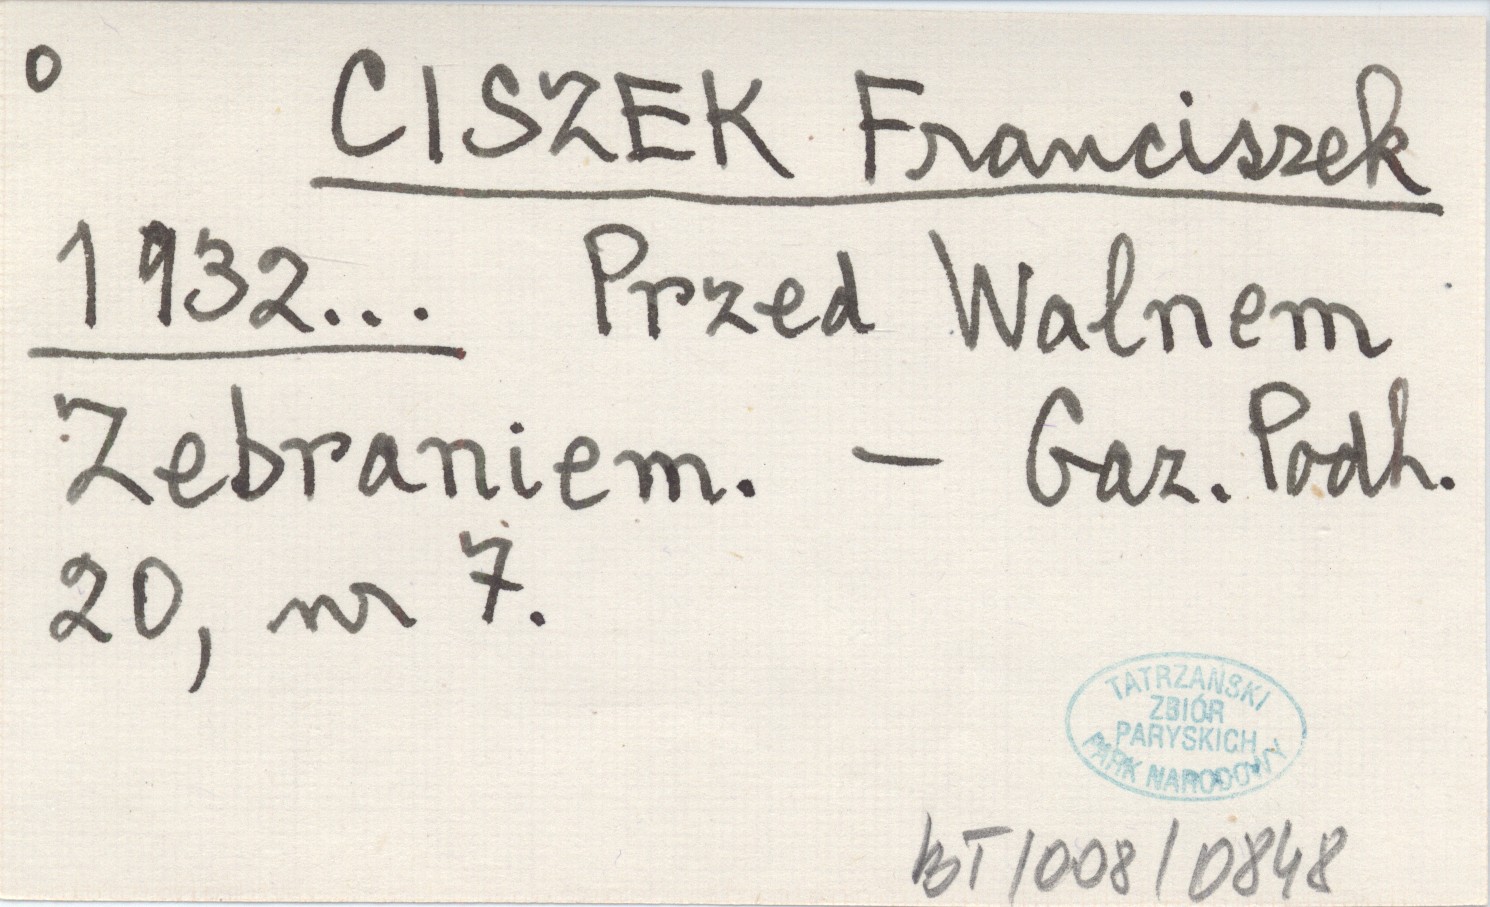 o CISZEK Franciszek
1932... Przed Walnem
Zebraniem. — Gaz. Podh.
20, nr 7.
TATRZAŃSKI
ZBIÓR
PARYSKICH
PARK NARODOWY
bT/008/0848